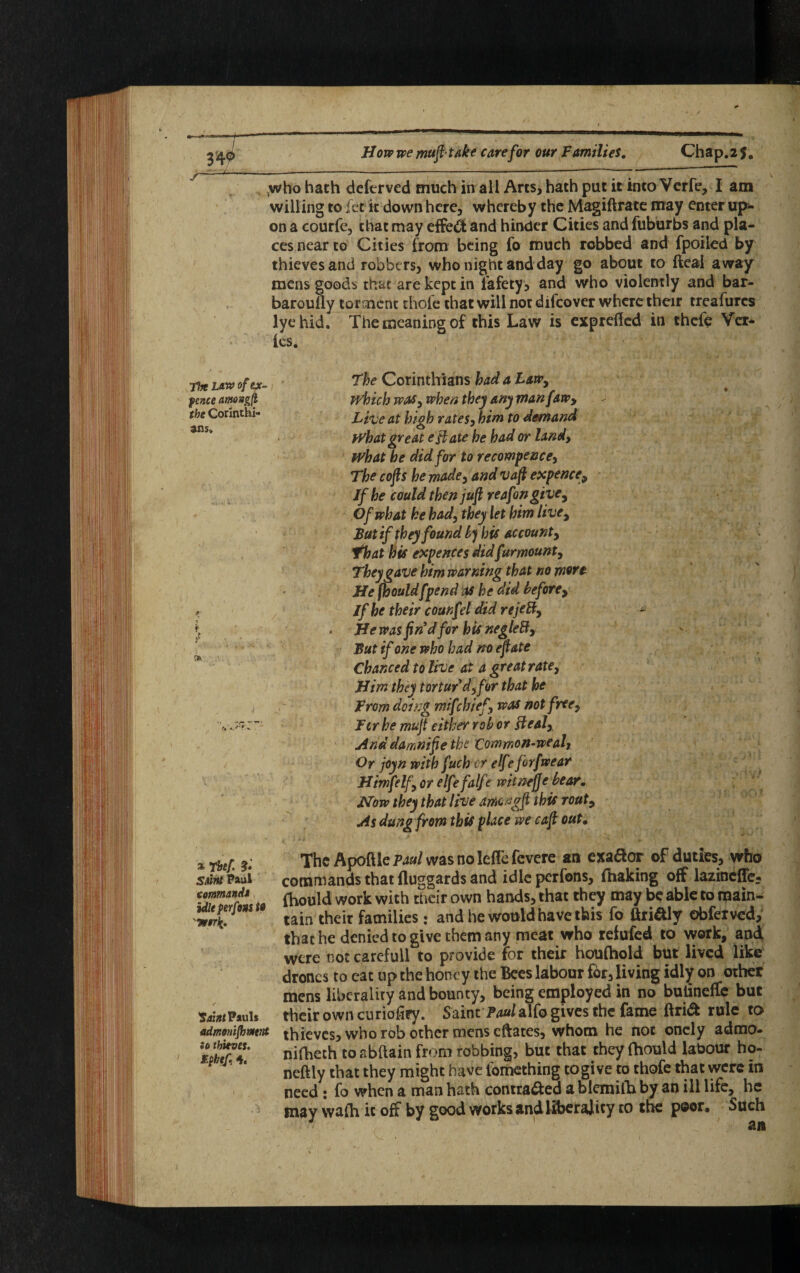 340 How we must take care for our Families. Chap.25.
who hath deserved much in all Arts, hath put it into Verse, I am
willing to set it down here, whereby the Magistrate may enter up-
on a course, that may effect and hinder Cities and suburbs and pla-
ces near to Cities from being so much robbed and spoiled by
thieves and robbers, who night and day go about to steal away
mens goods that are kept in safety, and who violently and bar-
barously torment those that will not discover where their treasures
lye hid. The meaning of this Law is expressed in these Ver-
ses.
The Law of ex-
pence amongst
the Corinthi-
ans.
The Corinthians had a Law,
Which was, when they any man saw,
Live at high rates, him to demand
What great estate he had or land,
What he did for to recompence,
The costs he made, and vast expence,
If he could then just reason give,
Of what he had, they let him live,
But if they found by his account,
That his expences did surmount,
They gave him warning that no more
He should spend as he did before,
If he their counsel did reject,
He was fin'd for his neglect,
But if one who had no estate
Chanced to live at a great rate,
Him they tortur'd, for that he
From doing mischief, was not free,
For he must either rob or steal,
And damnifie the Common-weal,
Or joyn with such or else forswear
Himself, or else false witnesse bear.
Now they that live amongst this rout,
As dung from this place we cast out.
2 Thes. 3.
Saint Paul
commands
idle persons to
work.
The Apostle Paul was no lesse severe an exactor of duties, who
commands that sluggards and idle persons, shaking off lazinesse,
should work with their own hands, that they may be able to main-
tain their families: and he would have this so strictly observed,
that he denied to give them any meat who refused to work, and
were not carefull to provide for their houshold but lived like
drones to eat up the honey the Bees labour for, living idly on other
mens liberality and bounty, being employed in no businesse but
their own curiosity. Saint Paul also gives the same strict rule to
thieves, who rob other mens estates, whom he not onely admo-
nisheth to abstain from robbing, but that they should labour ho-
nestly that they might have something to give to those that were in
need: so when a man hath contracted a blemish by an ill life, he
may wash it off by good works and liberality to the poor. Such
an
Saint Pauls
admonishment
to thieves.
Ephes. 4.